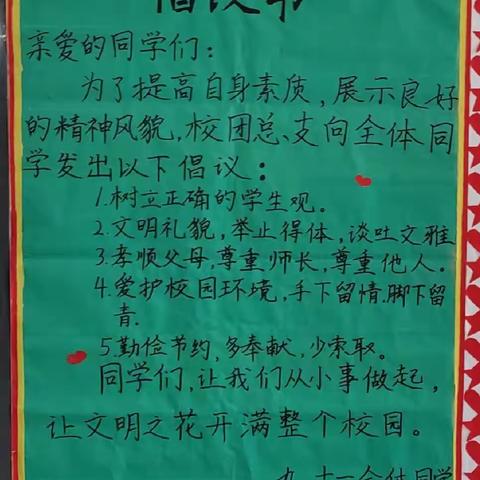 倡议书
亲爱的同学们：
为了提高自身素质，展示良好
的精神风貌，校团总、支向全体同
学发出以下倡议：
1.树立正确的学生观。
2.文明礼貌，举止得体，谈吐文雅
3.孝顺父母，尊重师长，尊重他人。
4.爱护校园环境，手下留情.脚下留
青.
5.勤俭节约，多奉献，少索取。
同学们，让我们从小事做起，
让文明之花开满整个校园。
九、十一全体同学